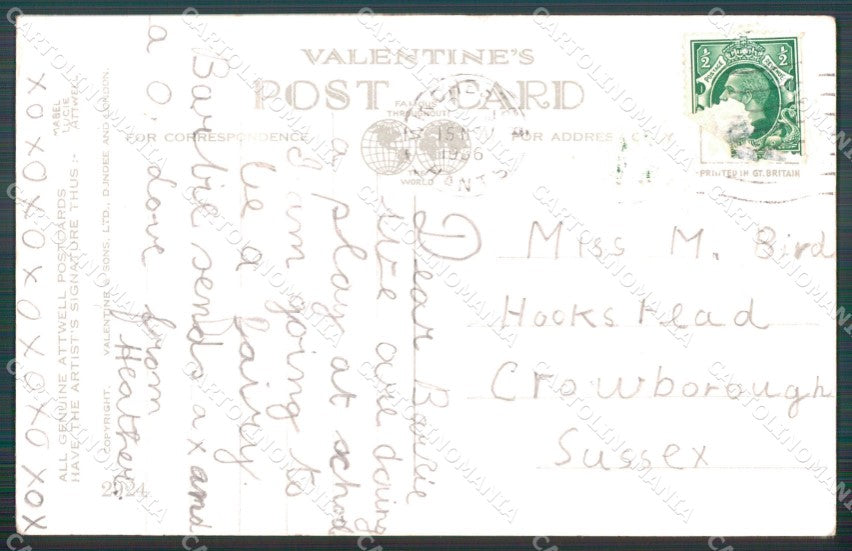 VALENTINE'S
POST CARD
FOR CORRESPONDENCE
FAMOUS
THROUGHOUT
THE
WORLD
FOR ADDRESS ONLY
15 NOV
1936
½ ½
POSTAGE REVENUE
PRINTED IN GT. BRITAIN
Miss M. Bird
Hookstead
Crowborough
Sussex
Dear
We are doing
a play at school
I am going to
be a fairy.
Barbie sends a x and
a O. love from
Heather.
XOXOXOXOXOXOXOX
MABEL
LUCIE
ATTWELL
ALL GENUINE ATTWELL POSTCARDS
HAVE THE ARTIST'S SIGNATURE THUS :-
COPYRIGHT. VALENTINE & SONS, LTD., DUNDEE AND LONDON.
2524
CARTOLINOMANIA